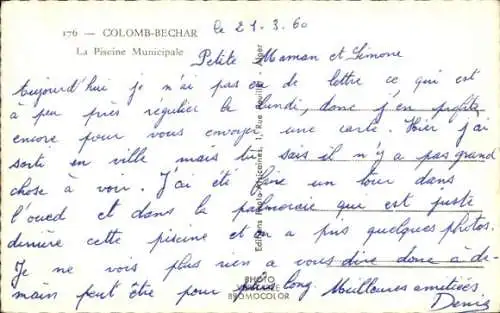 176 — COLOMB-BECHAR
La Piscine Municipale
le 21.3.60
Petite Maman et Simone
Aujourd'hui je n'ai pas eu de lettre ce qui est
à peu près régulier le lundi, donc j'en profite
encore pour vous envoyer une carte. Hier j'ai
sorti en ville mais tu sais il n'y a pas grand
chose à voir. J'ai été faire un tour dans
l'oued et dans la palmeraie qui est juste
derrière cette piscine et on a pris quelques photos.
Je ne vois plus rien a vous dire donc à de-
main peut être pour plus long. Meilleures amitiées
Denis
Editions Photo-Africaines, 1, Rue - Alger
PHOTO
VERITABLE
BROMOCOLOR